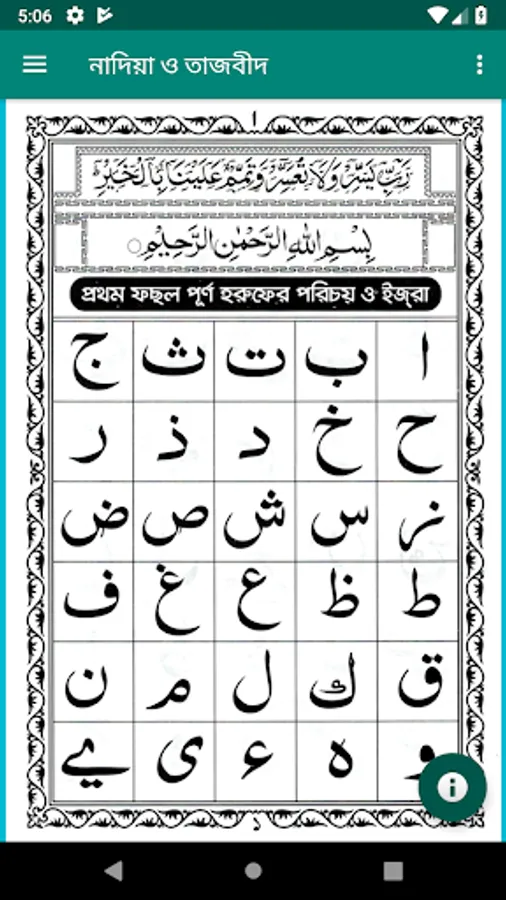 5:06
নাদিয়া ও তাজবীদ
ا
رَبِّ يَسِّرْ وَلَا تُعَسِّرْ وَتَمِّمْ عَلَيْنَا بِالْخَيْرِ
بِسْمِ اللهِ الرَّحْمٰنِ الرَّحِيْمِ
প্রথম ফছল পূর্ণ হরুফের পরিচয় ও ইজ্‌রা
ا ب ت ث ج
ح خ د ذ ر
ز س ش ص ض
ط ظ ع غ ف
ق ك ل م ن
و ه ء ي ے